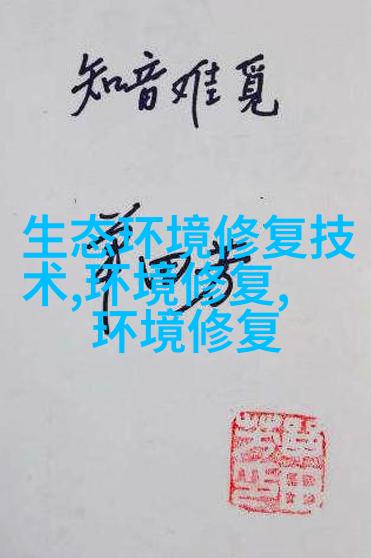 知音难觅
生态环境修复技
术,环境修复,
环境修复